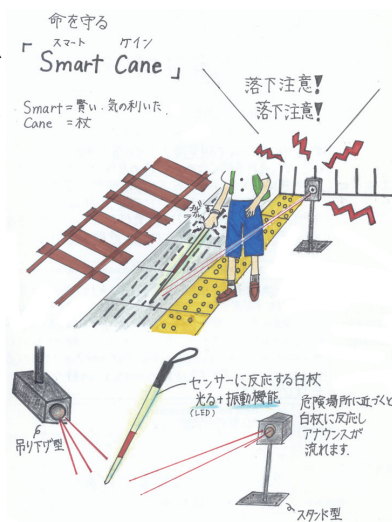 命を守る
スマート ケイン
「Smart Cane」
Smart=賢い・気の利いた
Cane =杖
落下注意!
落下注意!
センサーに反応する白杖
光る+振動機能
(LED)
吊り下げ型
危険場所に近づくと
白杖に反応し
アナウンスが
流れます.
スタンド型